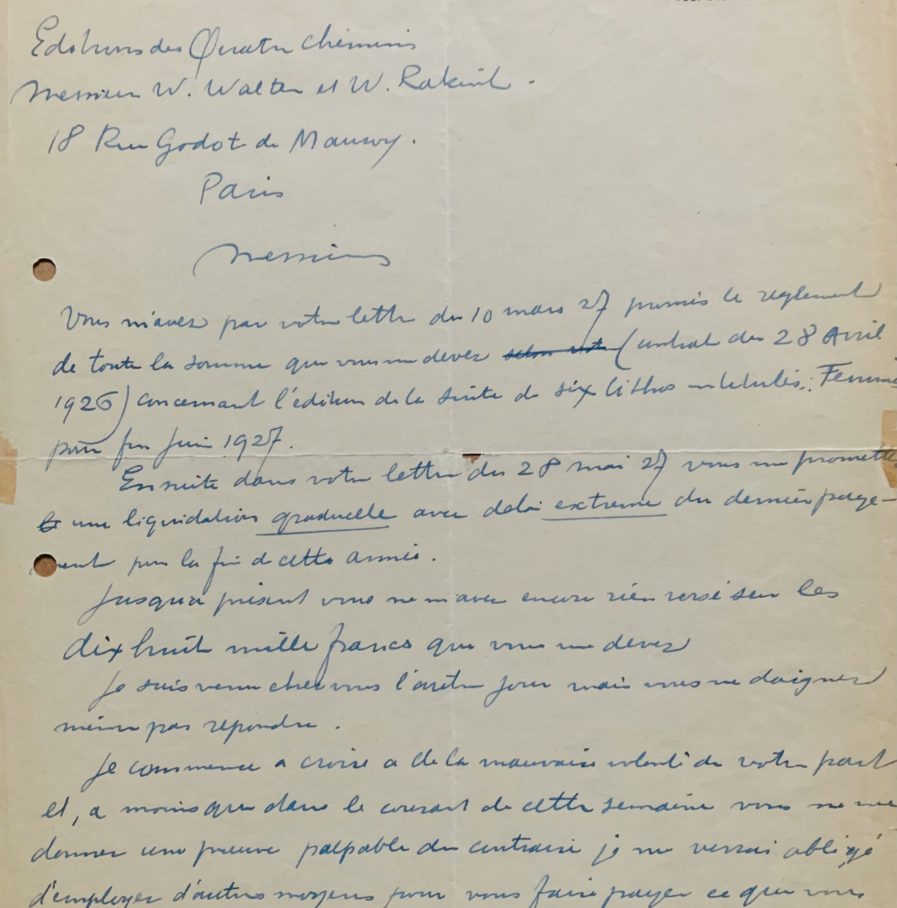 Editions des Quatre Chemins
Messieurs W. Walter et W. Rakint.
18 Rue Godot de Mauroy.
Paris
Messieurs
Vous m'avez par votre lettre du 10 mars 27 promis le reglement
de toute la somme que vous me devez selon votre (contrat du 28 Avril
1926) concernant l'édition de la suite de six lithos intitulés: Femmes
pour fin Juin 1927.
Ensuite dans votre lettre du 28 mai 27 vous me promettez
une liquidation graduelle avec delai extreme du dernier paye-
ment pour la fin de cette année.
Jusqua présent vous ne m'avez encore rien versé sur les
dix huit mille francs que vous me devez
Je suis venu chez vous l'autre jour mais vous ne daignez
même pas repondre.
Je commence a croire a de la mauvaise volonté de votre part
et, a moins que dans le courant de cette semaine vous ne me
donner une preuve palpable du contraire je me verrai obligé
d'employer d'autres moyens pour vous faire payer ce que vous